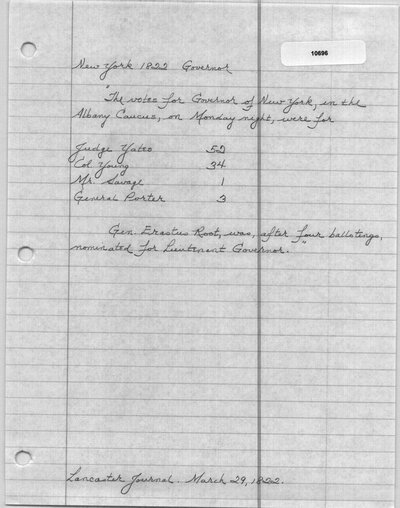 10696
New York 1822 Governor
"The votes for Governor of New York, in the
Albany Caucus, on Monday night, were for
Judge Yates
Col. Young 34
Mr. Savage 1
General Porter 3
Gen. Erastus Root, was, after four ballotings,
nominated for Lieutenant Governor."
Lancaster Journal. March 29, 1822.